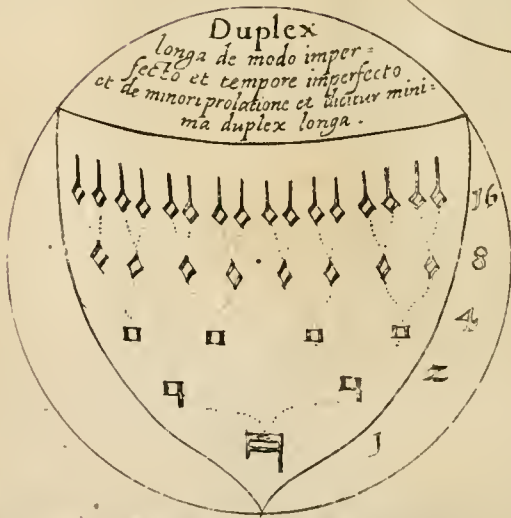 Duplex
longa de modo imper=
fecto et tempore imperfecto
et de minori prolatione et dicitur mini=
ma duplex longa.
16
8
4
2
1